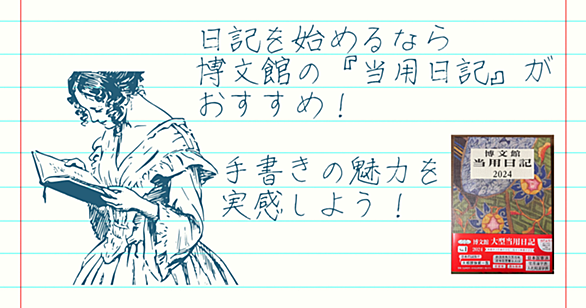 日記を始めるなら
博文館の『当用日記』が
おすすめ！
手書きの魅力を
実感しよう！
博文館
当用日記
2024
博文館 大型当用日記
2024